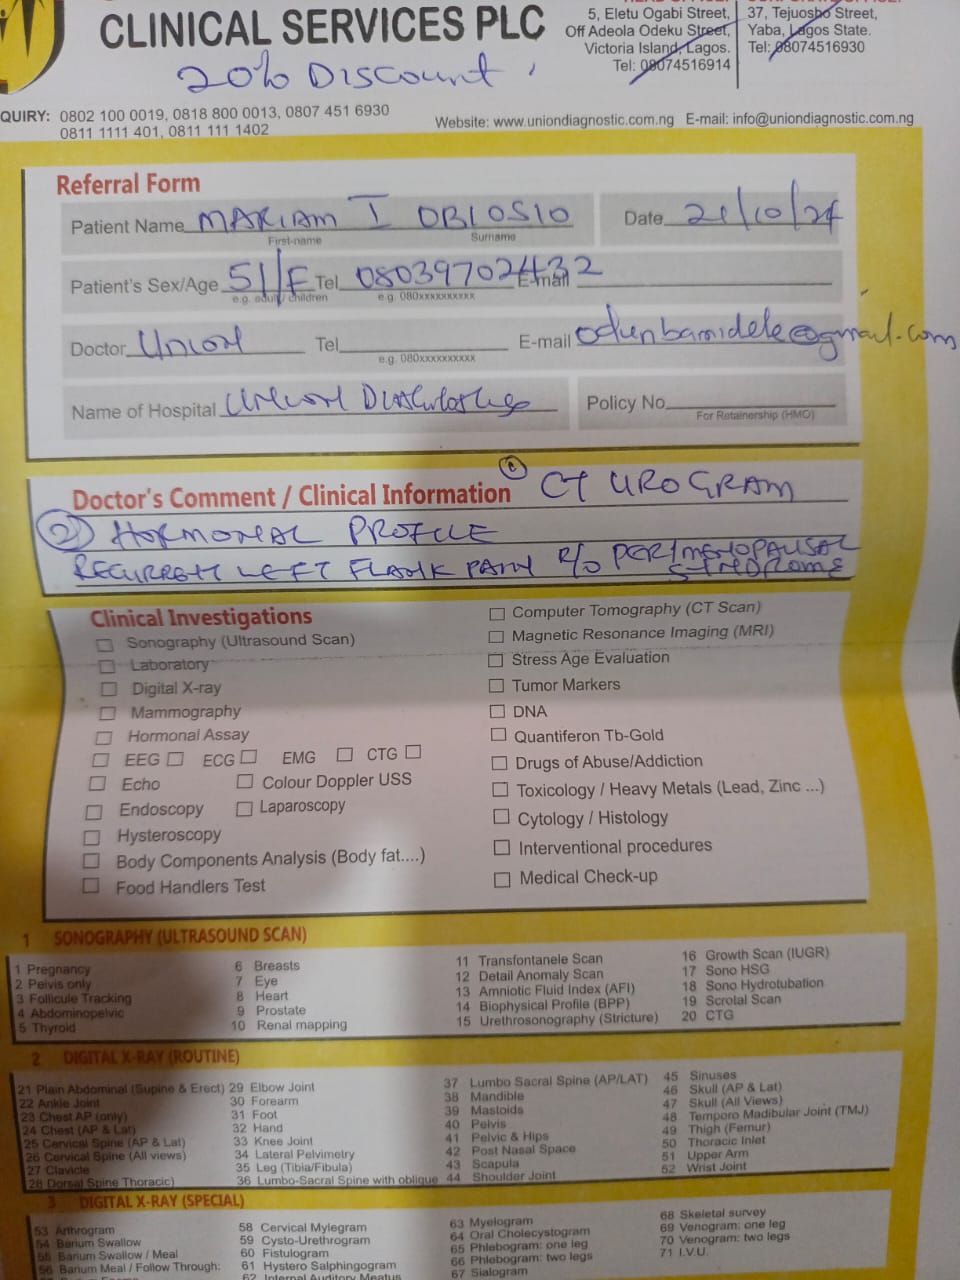 CLINICAL SERVICES PLC
5, Eletu Ogabi Street,
Off Adeola Odeku Street,
Victoria Island, Lagos.
Tel: 08074516914
37, Tejuosho Street,
Yaba, Lagos State.
Tel: 08074516930
20% DISCOUNT
QUIRY: 0802 100 0019, 0818 800 0013, 0807 451 6930
0811 1111 401, 0811 111 1402
Website: www.uniondiagnostic.com.ng E-mail: info@uniondiagnostic.com.ng
Referral Form
Patient Name MARIAM I OBIOSIO
First-name Surname
Date 21/10/24
Patient's Sex/Age 51/F Tel 08039702432 E-mail
e.g. adult/children e.g. 080xxxxxxxxxx
Doctor UNION Tel E-mail odunbamidele@gmail.com
e.g. 080xxxxxxxxxx
Name of Hospital UNION Policy No
For Retainership (HMO)
Doctor's Comment / Clinical Information CT UROGRAM
(2) HORMONAL PROFILE
RECURRENT LEFT FLANK PAIN R/O PERIMENOPAUSAL
SYNDROME
Clinical Investigations
Sonography (Ultrasound Scan)
Laboratory
Digital X-ray
Mammography
Hormonal Assay
EEG ECG EMG CTG
Echo Colour Doppler USS
Endoscopy Laparoscopy
Hysteroscopy
Body Components Analysis (Body fat....)
Food Handlers Test
Computer Tomography (CT Scan)
Magnetic Resonance Imaging (MRI)
Stress Age Evaluation
Tumor Markers
DNA
Quantiferon Tb-Gold
Drugs of Abuse/Addiction
Toxicology / Heavy Metals (Lead, Zinc ...)
Cytology / Histology
Interventional procedures
Medical Check-up
1 SONOGRAPHY (ULTRASOUND SCAN)
1 Pregnancy
2 Pelvis only
3 Follicule Tracking
4 Abdominopelvic
5 Thyroid
6 Breasts
7 Eye
8 Heart
9 Prostate
10 Renal mapping
11 Transfontanele Scan
12 Detail Anomaly Scan
13 Amniotic Fluid Index (AFI)
14 Biophysical Profile (BPP)
15 Urethrosonography (Stricture)
16 Growth Scan (IUGR)
17 Sono HSG
18 Sono Hydrotubation
19 Scrotal Scan
20 CTG
2 DIGITAL X-RAY (ROUTINE)
21 Plain Abdominal (Supine & Erect)
22 Ankle Joint
23 Chest AP (only)
24 Chest (AP & Lat)
25 Cervical Spine (AP & Lat)
26 Cervical Spine (All views)
27 Clavicle
28 Dorsal Spine Thoracic)
29 Elbow Joint
30 Forearm
31 Foot
32 Hand
33 Knee Joint
34 Lateral Pelvimetry
35 Leg (Tibia/Fibula)
36 Lumbo-Sacral Spine with oblique
37 Lumbo Sacral Spine (AP/LAT)
38 Mandible
39 Mastoids
40 Pelvis
41 Pelvic & Hips
42 Post Nasal Space
43 Scapula
44 Shoulder Joint
45 Sinuses
46 Skull (AP & Lat)
47 Skull (All Views)
48 Temporo Madibular Joint (TMJ)
49 Thigh (Femur)
50 Thoracic Inlet
51 Upper Arm
52 Wrist Joint
3 DIGITAL X-RAY (SPECIAL)
53 Arthrogram
54 Barium Swallow
55 Barium Swallow / Meal
56 Barium Meal / Follow Through:
58 Cervical Mylegram
59 Cysto-Urethrogram
60 Fistulogram
61 Hystero Salphingogram
62 Internal Auditory Meatus
63 Myelogram
64 Oral Cholecystogram
65 Phlebogram: one leg
66 Phlebogram: two legs
67 Sialogram
68 Skeletal survey
69 Venogram: one leg
70 Venogram: two legs
71 I.V.U.